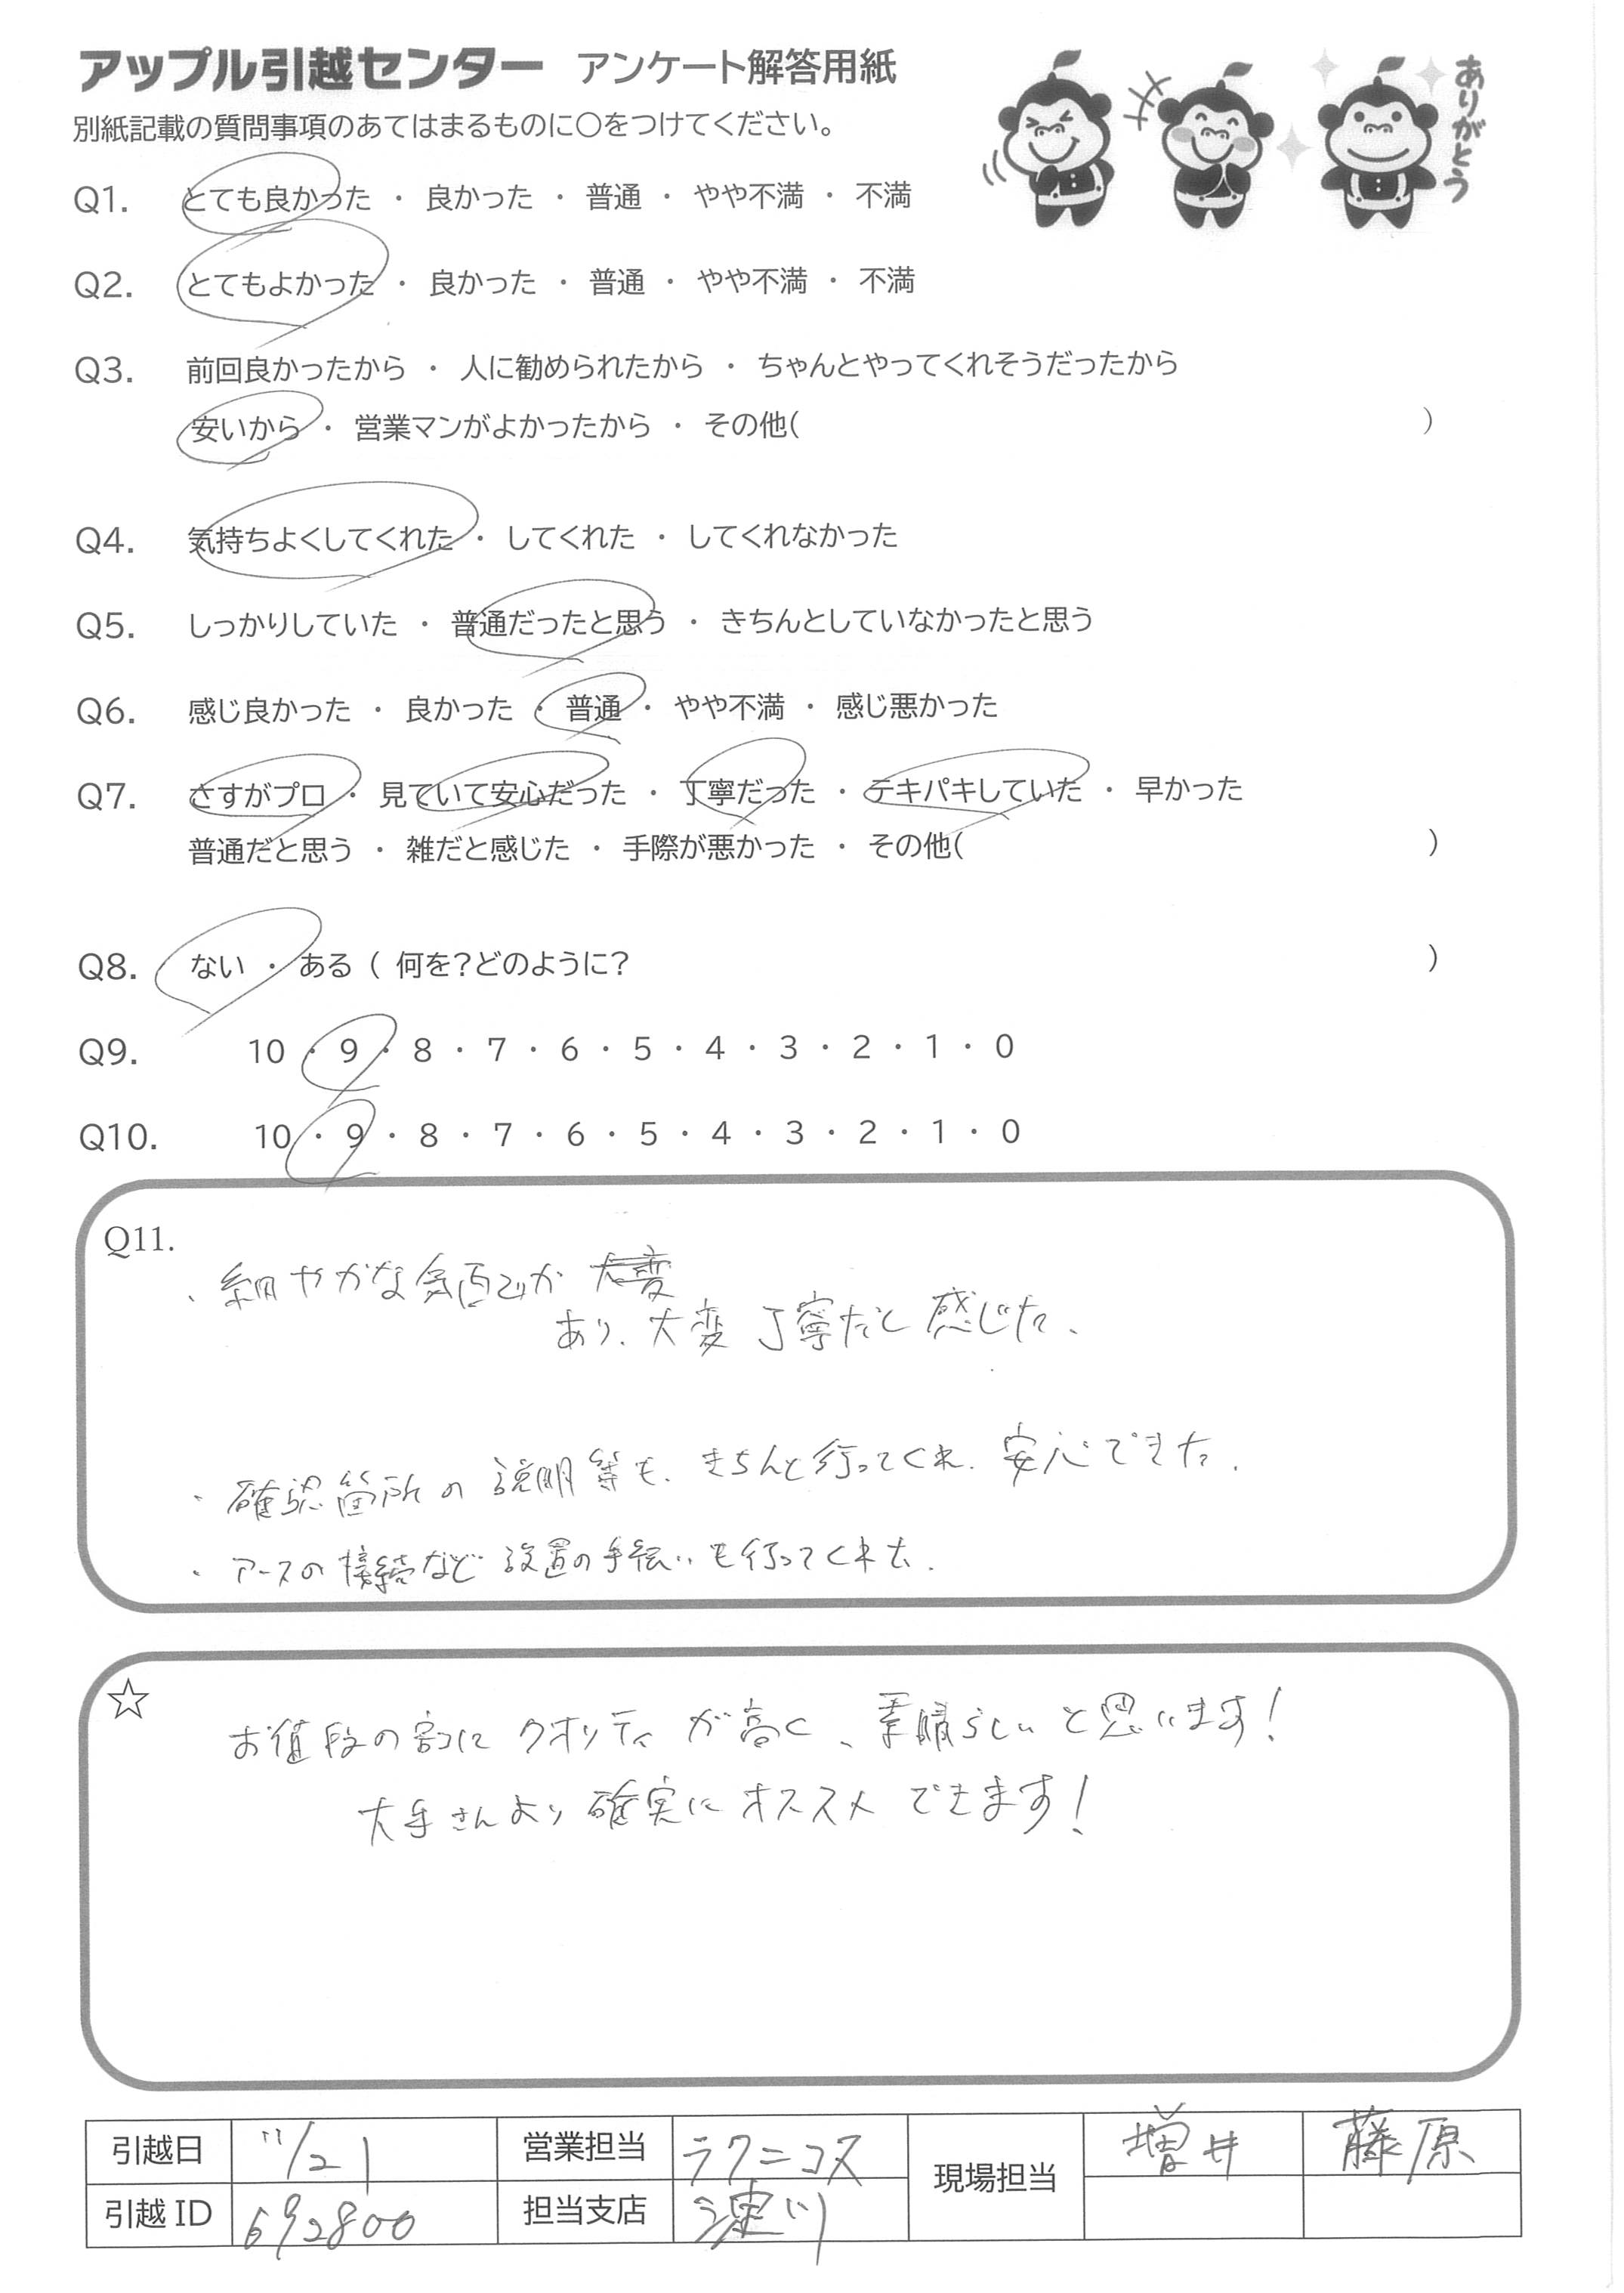 アップル引越センター アンケート解答用紙
ありがとう
別紙記載の質問事項のあてはまるものに〇をつけてください。
Q1. とても良かった ・ 良かった ・ 普通 ・ やや不満 ・ 不満
Q2. とてもよかった ・ 良かった ・ 普通 ・ やや不満 ・ 不満
Q3. 前回良かったから ・ 人に勧められたから ・ ちゃんとやってくれそうだったから
安いから ・ 営業マンがよかったから ・ その他( )
Q4. 気持ちよくしてくれた ・ してくれた ・ してくれなかった
Q5. しっかりしていた ・ 普通だったと思う ・ きちんとしていなかったと思う
Q6. 感じ良かった ・ 良かった ・ 普通 ・ やや不満 ・ 感じ悪かった
Q7. さすがプロ ・ 見ていて安心だった ・ 丁寧だった ・ テキパキしていた ・ 早かった
普通だと思う ・ 雑だと感じた ・ 手際が悪かった ・ その他( )
Q8. ない ・ ある ( 何を?どのように? )
Q9. 10 ・ 9 ・ 8 ・ 7 ・ 6 ・ 5 ・ 4 ・ 3 ・ 2 ・ 1 ・ 0
Q10. 10 ・ 9 ・ 8 ・ 7 ・ 6 ・ 5 ・ 4 ・ 3 ・ 2 ・ 1 ・ 0
Q11.
・細やかな気配りが 大変
あり、大変 丁寧だと 感じた。
・確認箇所の 説明等も、きちんと行ってくれ、安心できた。
・アースの接続など 設置の手伝いも行ってくれた。
☆
お値段の割に クオリティ が高く、素晴らしい と思います!
大手さんより 確実に オススメ できます!
引越日 11/21 営業担当 ラクニコス 現場担当 増井 藤原
引越ID 692800 担当支店